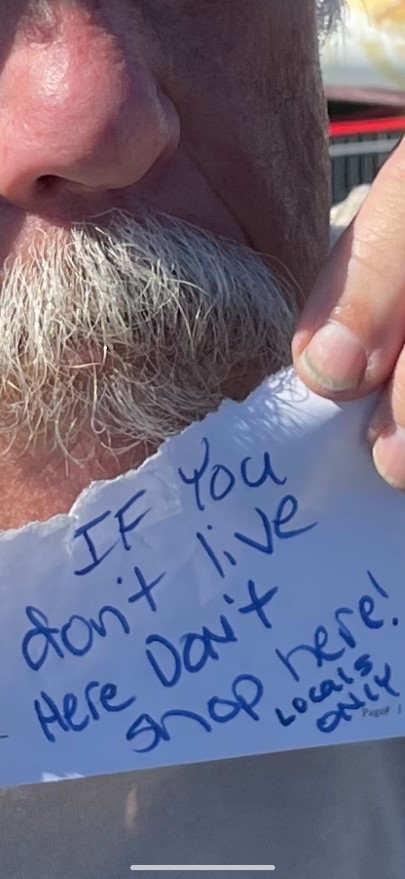 IF You
don't live
Here Don't
shop here!
LOCALS
ONLY
Page# 1